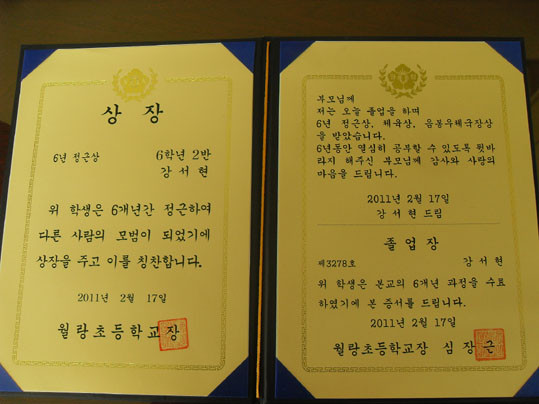 상 장
6년 정근상
6학년 2반
강 서 현
위 학생은 6개년간 정근하여
다른 사람의 모범이 되었기에
상장을 주고 이를 칭찬합니다.
2011년 2월 17일
월랑초등학교장
부모님께
저는 오늘 졸업을 하며
6년 정근상, 체육상, 음봉우체국장상
을 받았습니다.
6년동안 열심히 공부할 수 있도록 뒷바
라지 해주신 부모님께 감사와 사랑의
마음을 드립니다.
2011년 2월 17일
강 서 현 드림
졸 업 장
제3278호
강 서 현
위 학생은 본교의 6개년 과정을 수료
하였기에 본 증서를 드립니다.
2011년 2월 17일
월랑초등학교장 심 장 근